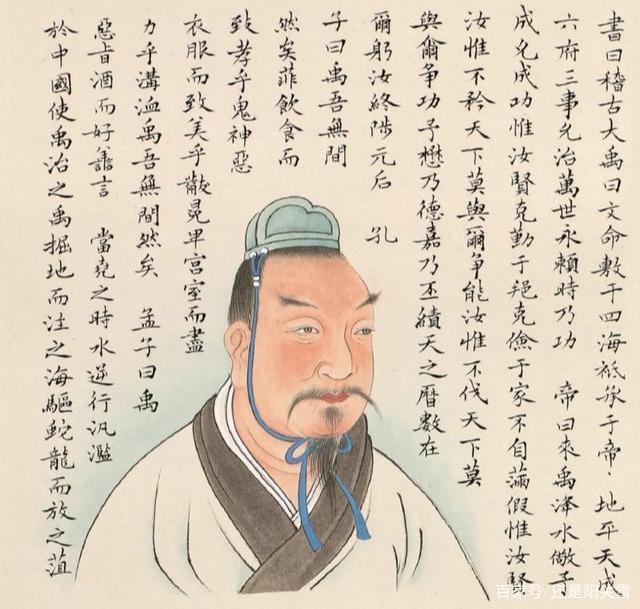 書曰稽古大禹曰文命敷于四海祗承于帝地平天成
六府三事允治萬世永賴時乃功 帝曰來禹洚水儆予
成允成功惟汝賢克勤于邦克儉于家不自滿假惟汝賢
汝惟不矜天下莫與爾爭能汝惟不伐天下莫
與爾爭功予懋乃德嘉乃丕績天之曆數在
爾躬汝終陟元后 孔
子曰禹吾無間
然矣菲飲食而
致孝乎鬼神惡
衣服而致美乎黻冕卑宮室而盡
力乎溝洫禹吾無間然矣 孟子曰禹
惡旨酒而好善言 當堯之時水逆行汎濫
於中國使禹治之禹掘地而注之海驅蛇龍而放之菹
百家号/还是阳天蜜